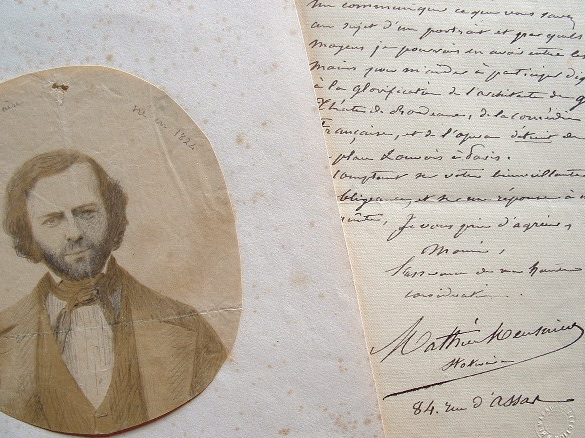 né en 1824
me communiquer ce que vous savez
au sujet d'un portrait et par quels
moyens je pourrais en avoir entre les
mains pour m'aider à participer
à la glorification de l'architecte du
Théâtre de Bordeaux, de la comédie
française, et de l'opéra détruit de
place Louvois à Paris.
Comptant sur votre bienveillante
obligeance, et sur une réponse à
Je vous prie d'agréer,
l'assurance de ma haute
considération.
84. rue d'Assas